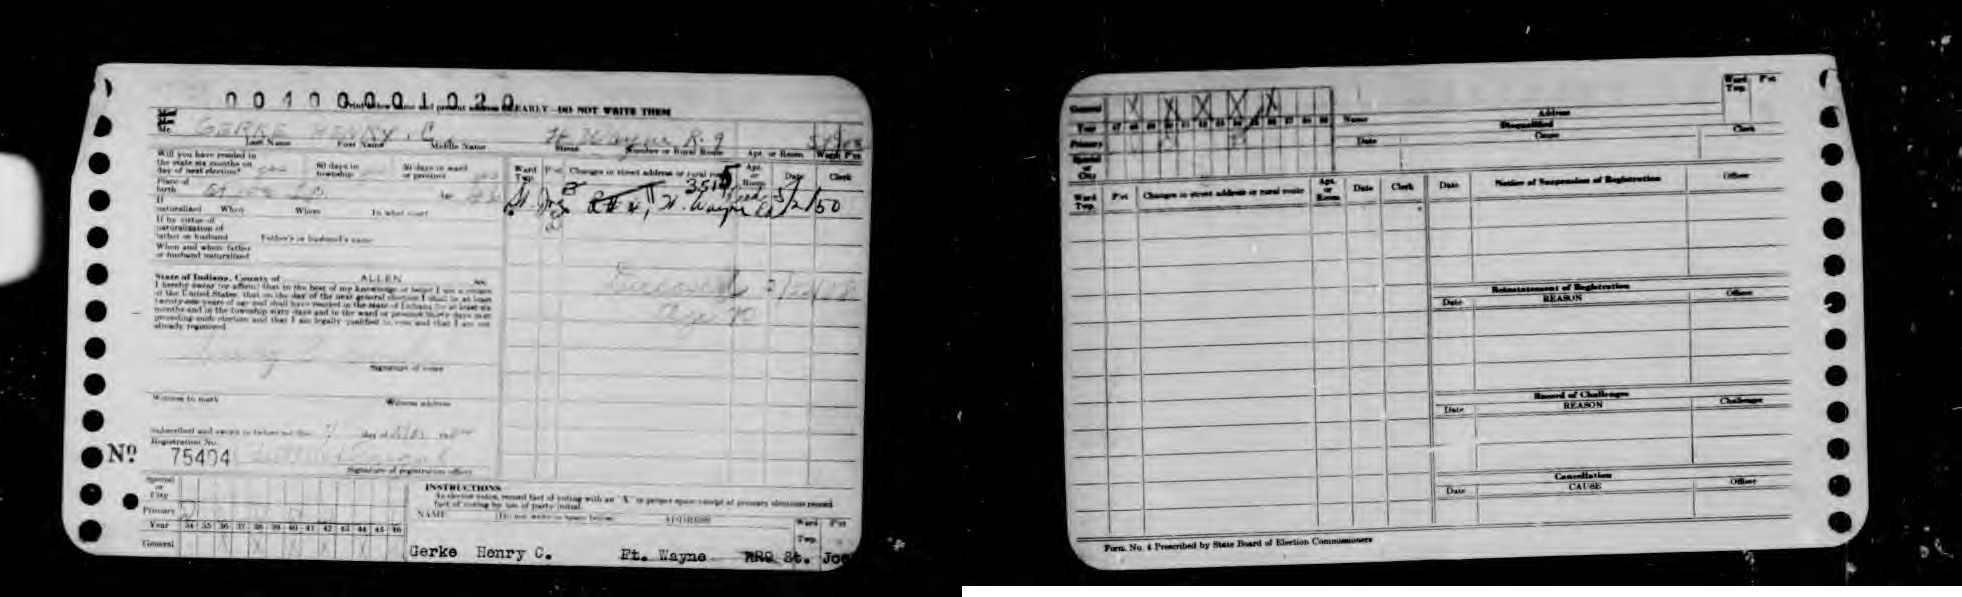 0010000 1020
EARLY — DO NOT WRITE THEM
Mr. GERKE HENRY. C. Ft Wayne R. 9
Last Name First Name Middle Name Street Number or Rural Route Apt. or Room Ward P'ct
Will you have resided in
the state six months on
day of next election? yes
60 days in
township
30 days in ward
or precinct yes
Place of
birth
If
naturalized When Where In what court
If by virtue of
naturalization of
father or husband Father's or husband's name
When and where father
or husband naturalized
State of Indiana, County of ALLEN
I hereby swear (or affirm) that to the best of my knowledge or belief I am a citizen
of the United States, that on the day of the next general election I shall be at least
twenty-one years of age and shall have resided in the state of Indiana for at least six
months and in the township sixty days and in the ward or precinct thirty days next
preceding such election and that I am legally qualified to vote and that I am not
already registered
Signature of voter
Witness to mark Witness address
Subscribed and sworn to before me this day of
Registration No.
No 75494
Signature of registration officer
Ward Twp. P'ct Changes in street address or rural route Apt. or Room Date Clerk
St. Joe R#4, Ft. Wayne 5/2/50
Deceased
age 70
Special
or
City
Primary
Year 34 35 36 37 38 39 40 41 42 43 44 45 46
General X X X X X
INSTRUCTIONS
As elector votes, record fact of voting with an "X" in proper space except at primary elections record
fact of voting by use of party initial.
NAME (Do not write in space below) ADDRESS Ward Twp. P'ct
Gerke Henry C. Ft. Wayne RR9 St. Joe
General X X X X X
Year 47 48 49 50 51 52 53 54 55 56 57 58 59
Primary
Special
or
City
Name Address Ward Twp. P'ct
Disqualified
Date Cause Clerk
Ward Twp. P'ct Changes in street address or rural route Apt. or Room Date Clerk
Date Notice of Suspension of Registration Officer
Reinstatement of Registration
Date REASON Officer
Record of Challenges
Date REASON Challenger
Cancellation
Date CAUSE Officer
Form No. 4 Prescribed by State Board of Election Commissioners